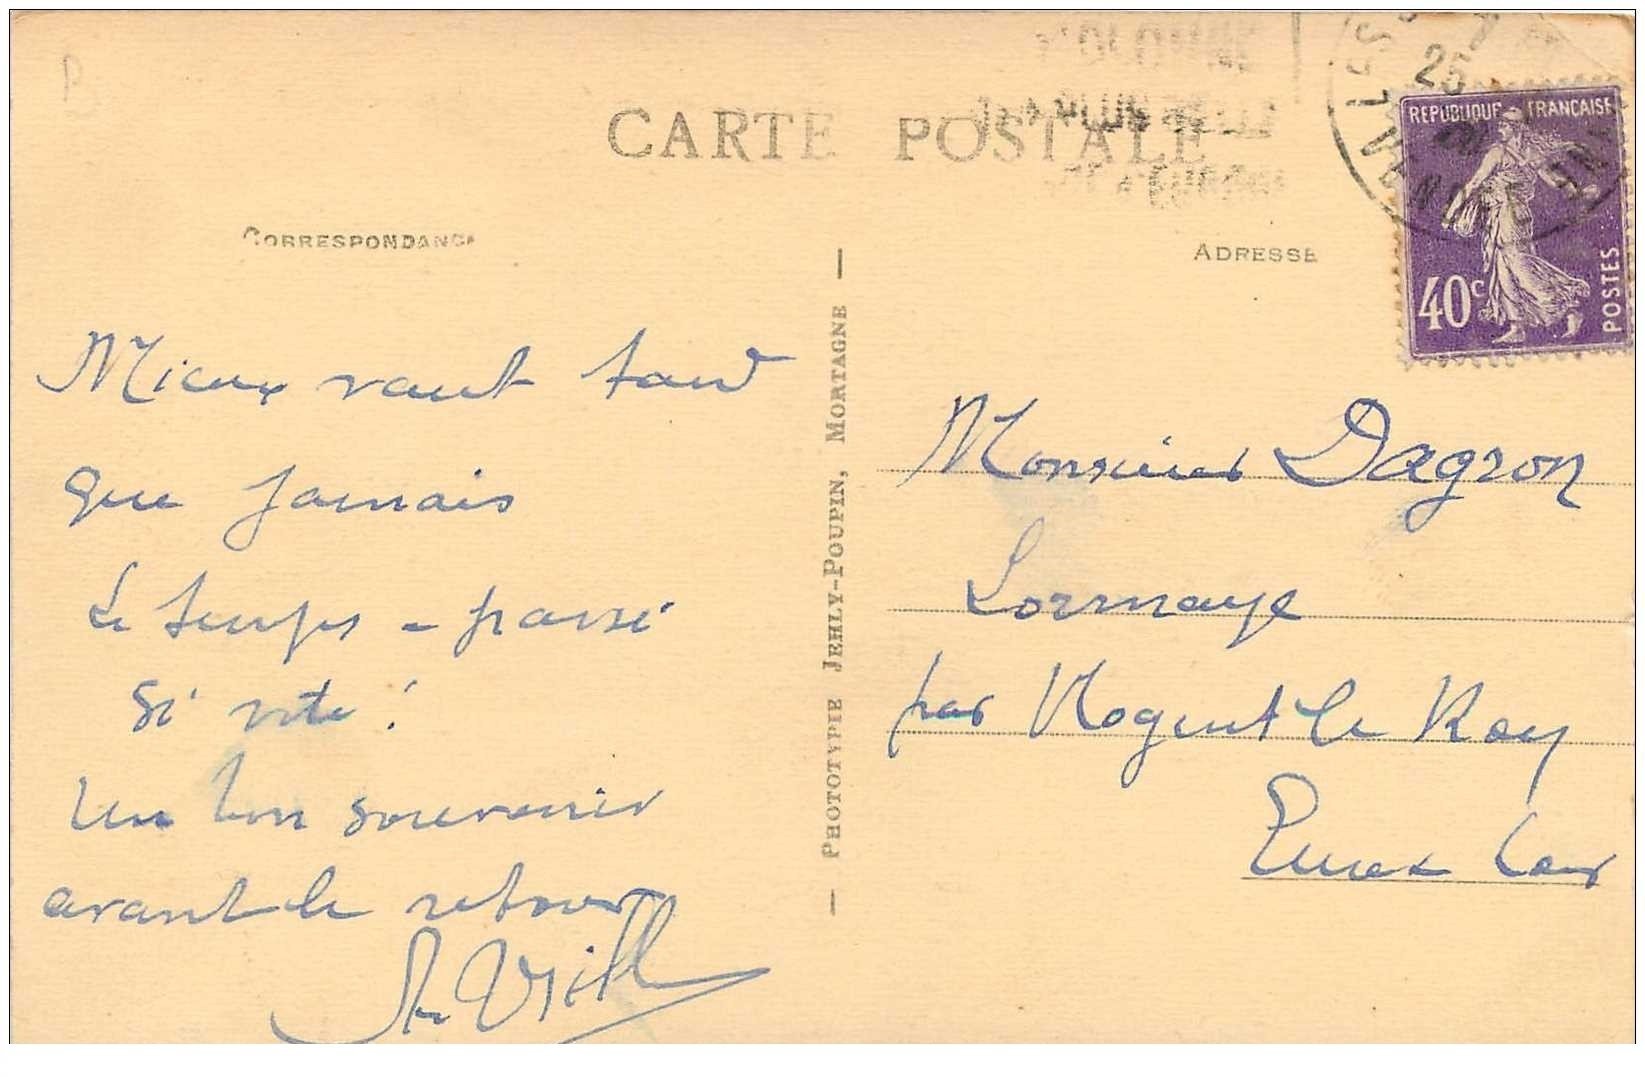 CARTE POSTALE
CORRESPONDANCE
ADRESSE
REPUBLIQUE FRANCAISE
40c
POSTES
25
PHOTOTYPIE JEHLY-POUPIN, MORTAGNE
Mieux vaut tard
que jamais
Le temps a passé
si vite !
Un bon souvenir
avant le retour
Monsieur Dagron
Lormaye
par Nogent le Roy
Eure & Loir